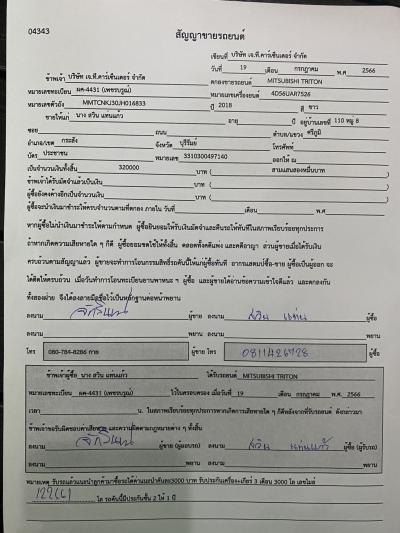 04343
สัญญาขายรถยนต์
เขียนที่ บริษัท เจ.ที.คาร์เซ็นเตอร์ จำกัด
วันที่ 19 เดือน กรกฎาคม พ.ศ 2566
ข้าพเจ้า บริษัท เจ.ที.คาร์เซ็นเตอร์ จำกัด ตกลงขายรถยนต์ MITSUBISHI TRITON
หมายเลขทะเบียน ผค-4431 (เพชรบูรณ์) หมายเลขเครื่องยนต์ 4D56UAR7526
หมายเลขตัวถัง MMTCNKJ30JH016833 ปี 2018 สี ขาว
ขายให้แก่ นาง สวิน แทนแก้ว อายุ ปี อยู่บ้านเลขที่ 110 หมู่ 8
ซอย ถนน ตำบล/แขวง ศรีภูมิ
อำเภอ/เขต กระสัง จังหวัด บุรีรัมย์ โทรศัพท์
บัตร ประชาชน หมายเลข 3310300497140 ออกให้ ณ
เป็นจำนวนเงินทั้งสิ้น 320000 บาท ( สามแสนสองหมื่นบาท )
ข้าพเจ้าได้รับมัดจำแล้วเป็นเงิน บาท ( )
ผู้ซื้อยังคงค้างอีกเป็นจำนวนเงิน บาท ( )
ผู้ซื้อจะนำเงินมาชำระให้ครบจำนวนตามที่ตกลง ภายใน วันที่ เดือน พ.ศ.
หากผู้ซื้อไม่นำเงินมาชำระได้ตามกำหนด ผู้ซื้อยินยอมให้ริบเงินมัดจำและคืนรถให้ทันทีในสภาพเรียบร้อยทุกประการ
ถ้าหากเกิดความเสียหายใด ๆ ก็ดี ผู้ซื้อยอมชดใช้ให้ทั้งสิ้น ตลอดทั้งคดีแพ่ง และคดีอาญา ส่วนผู้ขายเมื่อได้รับเงิน
ครบถ้วนตามสัญญาแล้ว ผู้ขายจะทำการโอนกรรมสิทธิ์รถคันนี้ให้แก่ผู้ซื้อทันที อากรแสตมป์ซื้อ-ขาย ผู้ซื้อเป็นผู้ออก จะ
ได้ติดให้ครบถ้วน เมื่อวันทำการโอนทะเบียนยานพาหนะ ฯ ผู้ซื้อ และผู้ขายได้อ่านข้อความเข้าใจดีแล้ว และตกลงกัน
ทั้งสองฝ่าย จึงได้ลงลายมือชื่อไว้เป็นหลักฐานต่อหน้าพยาน
ลงนาม ผู้ขาย ลงนาม สวิน แทน ผู้ซื้อ
ลงนาม พยาน ลงนาม พยาน
โทร 080-784-8286 กาย ผู้ขาย โทร ผู้ซื้อ
ข้าพเจ้าผู้ซื้อ นาง สวิน แทนแก้ว ได้รับรถยนต์ MITSUBISHI TRITON
หมายเลขทะเบียน ผค-4431 (เพชรบูรณ์) ไว้ในครอบครอง เมื่อวันที่ 19 เดือน กรกฎาคม พ.ศ. 2566
เวลา น. ในสภาพเรียบร้อยทุกประการหากเกิดการเสียหายใด ๆ ก็ดีหลังจากที่รับรถยนต์ ดังกล่าวมา
ข้าพเจ้าขอรับผิดชอบค่าเสียหาย และความผิดตามกฎหมายต่าง ๆ ทั้งสิ้น
ลงนาม ผู้ขาย (ผู้มอบรถ) ลงนาม สวิน แทนแก้ว ผู้ซื้อ (ผู้รับรถ)
ลงนาม พยาน ลงนาม พยาน
หมายเหตุ รับรถแล้วแนะนำลูกค้ามาซื้อรถได้ค่าแนะนำคันละ3000 บาท รับประกันเครื่อง+เกียร์ 3 เดือน 3000 โล เลขไมล์
โล รถคันนี้มีประกันชั้น 2 ให้ 1 ปี